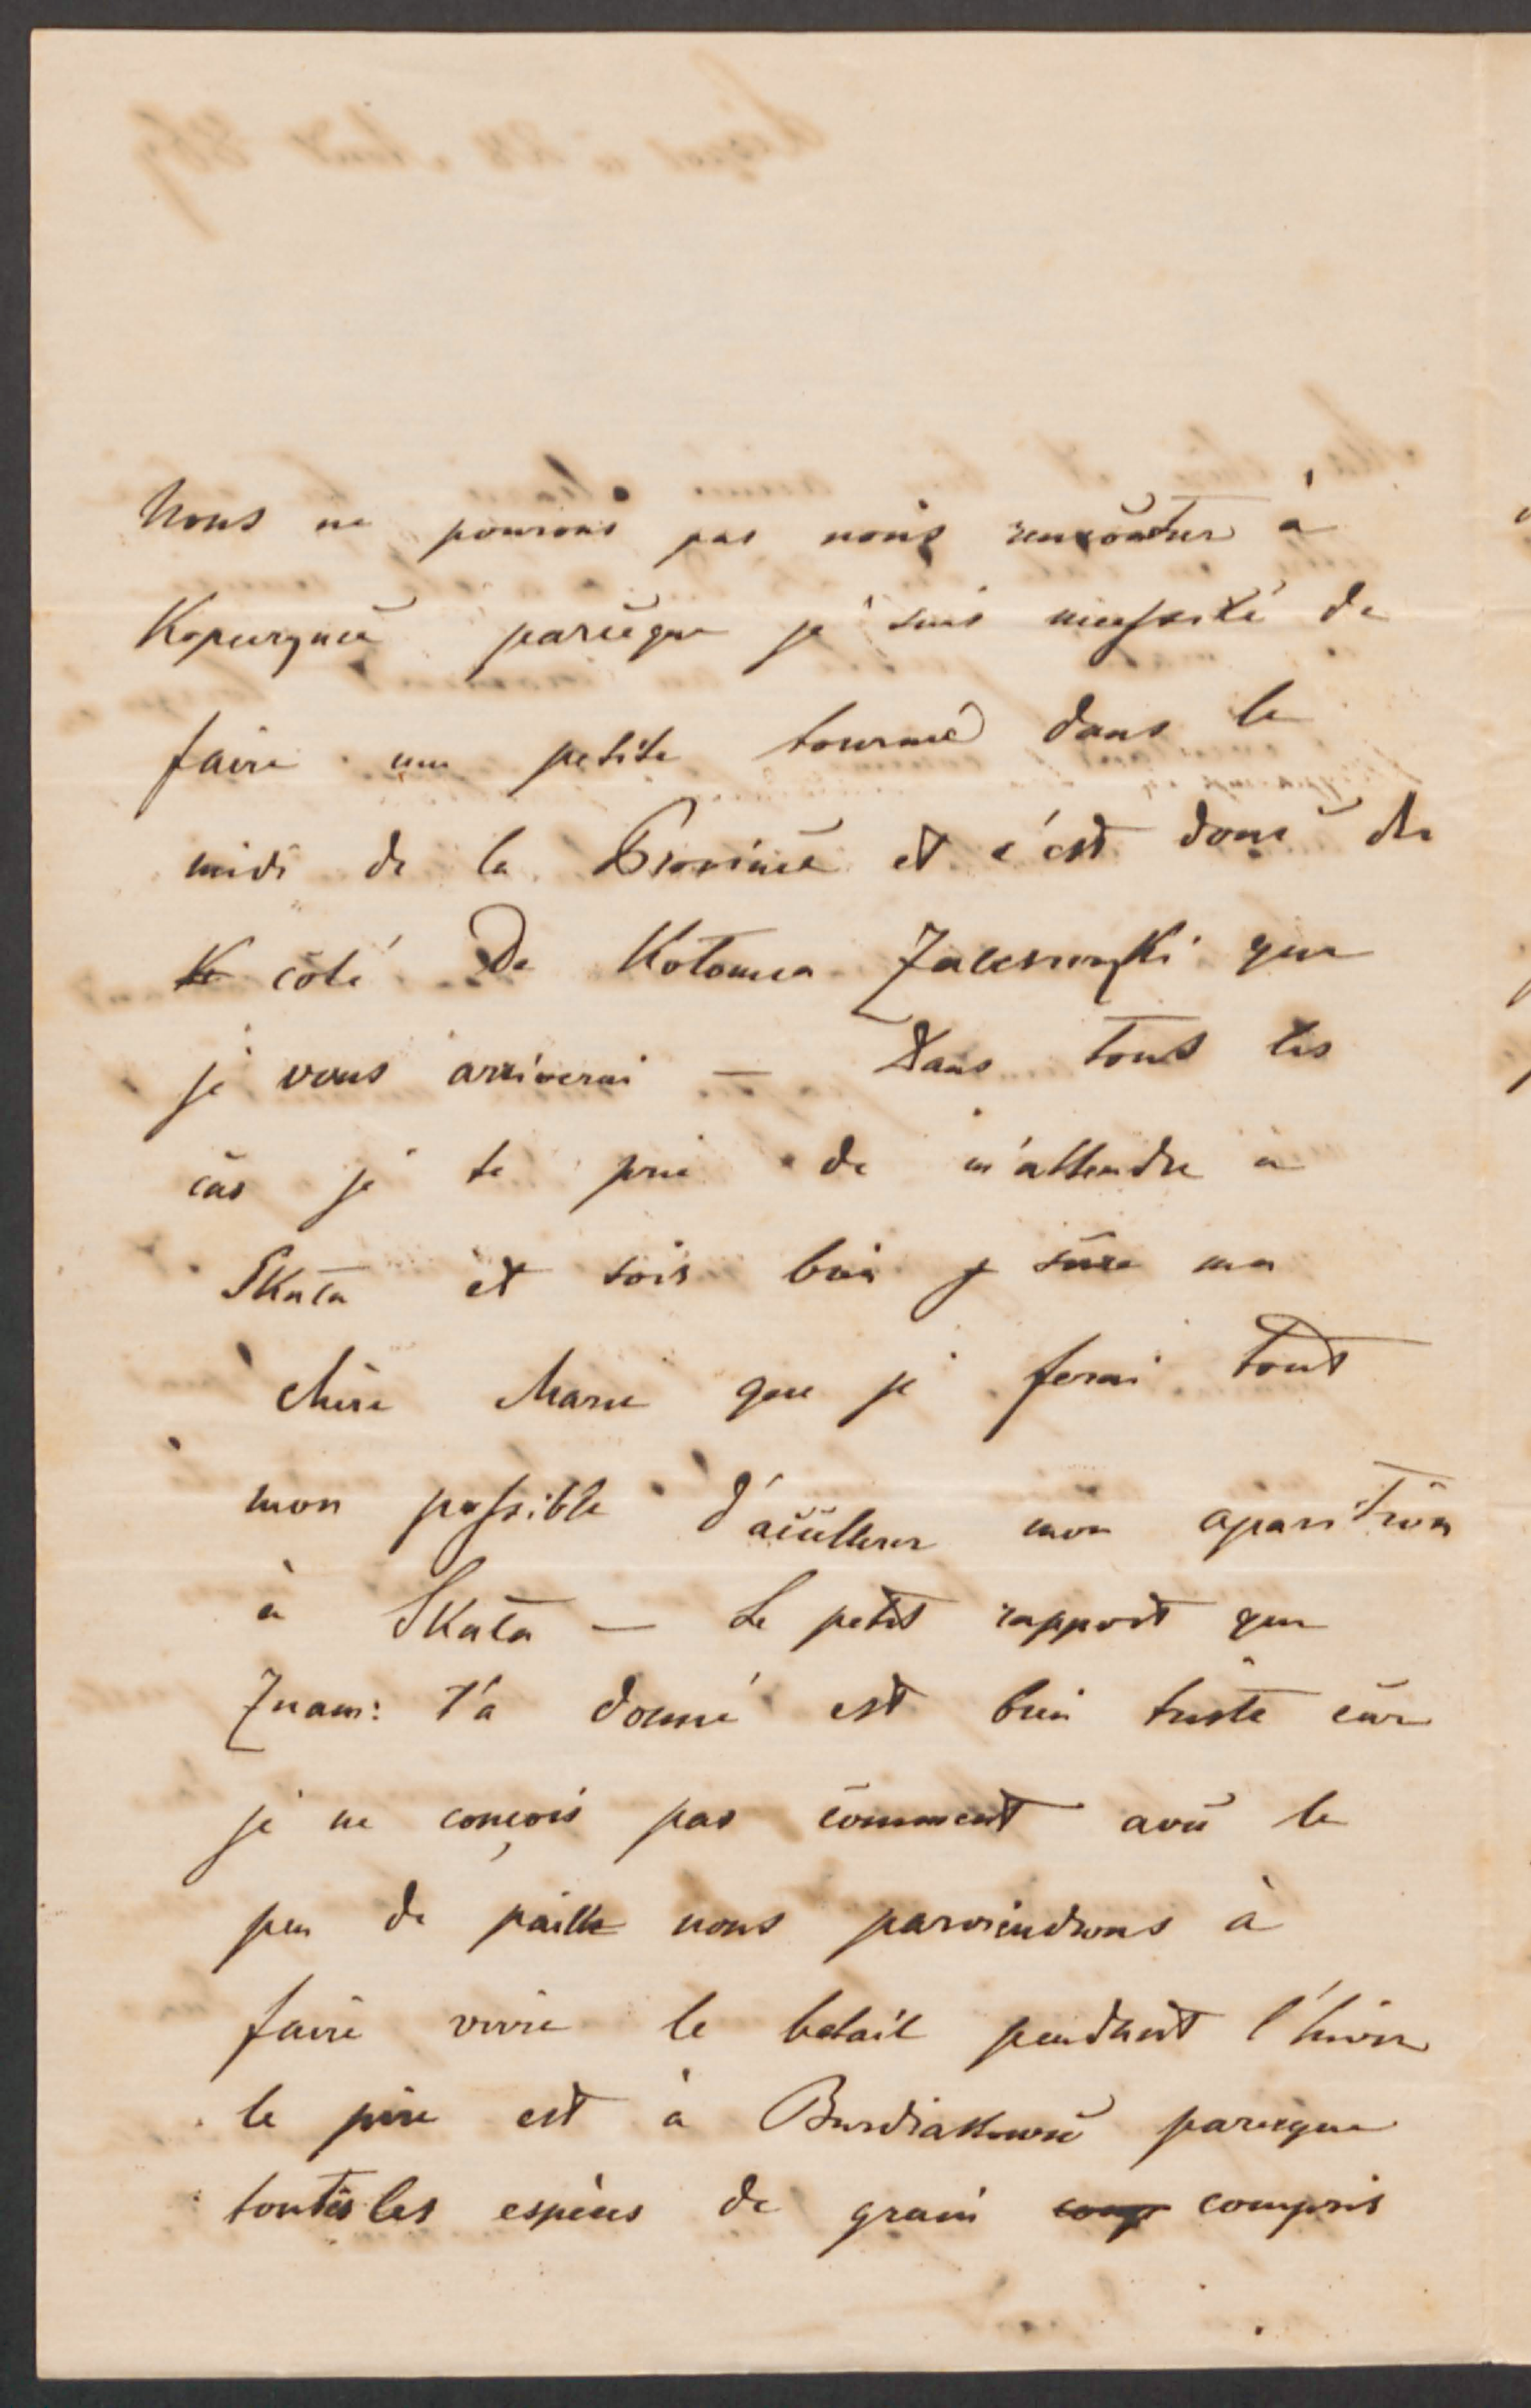 Nous ne pourons pas nous rencontrer à
Kopeczynce parceque je suis necessité de
faire une petite tourneé dans le
midi de la Province et c'est donc du
côté De Kotomea Zaleszczyki que
je vous arriverai — Dans tout les
cas je te prie de m'attendre à
Skata et sois bien sûre ma
chère Marie que je ferai tout
mon possible d'accellerer mon aparition
à Skata — Le petit rapport que
Znam: t'a donné est bien triste car
je ne conçois pas comment avec le
peu de paille nous parviendrons à
faire vivre le betail pendant l'hiver
le pire est à Burdiakowce parceque
toutes les espèces de grain comp compris